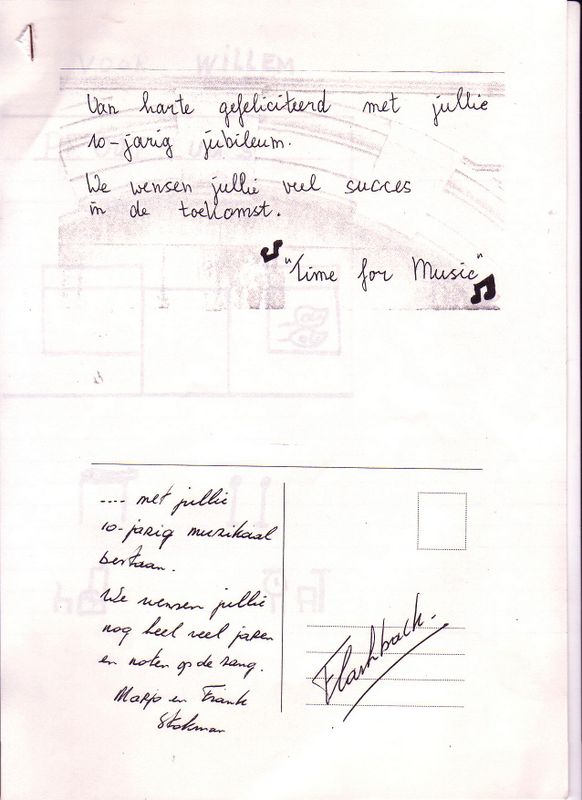 1
VOOR WILLEM
Van harte gefeliciteerd met jullie
10-jarig jubileum.
We wensen jullie veel succes
in de toekomst.
"Time for Music"
---- met jullie
10-jarig muzikaal
bestaan.
We wensen jullie
nog heel veel jaren
en noten op de zang.
Marjo en Frank
Stokman
Flashback-